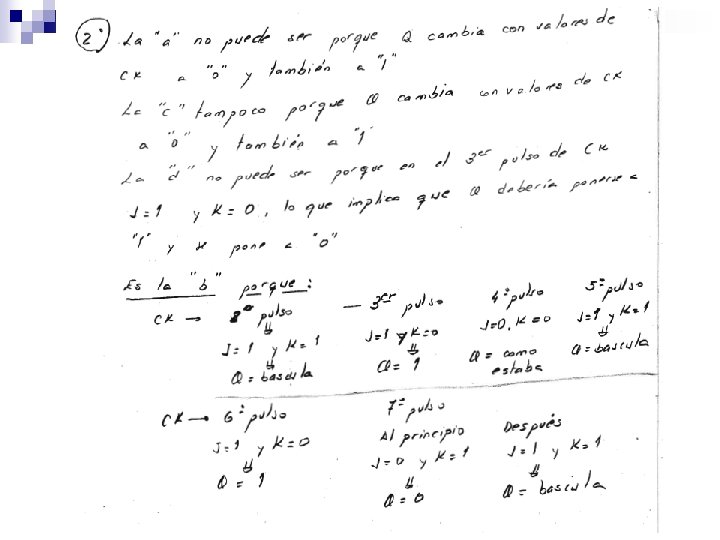 2º) La "a" no puede ser porque Q cambia con valores de
CK a "0" y también a "1"
La "c" tampoco porque Q cambia con valores de CK
a "0" y también a "1"
La "d" no puede ser porque en el 3er pulso de CK
J=1 y K=0, lo que implica que Q debería ponerse a
"1" y se pone a "0"
Es la "b" porque:
CK → 2º pulso — 3er pulso 4º pulso 5º pulso
J=1 y K=1 J=1 y K=0 J=0, K=0 J=1 y K=1
⇓ ⇓ ⇓
Q = bascula Q = 1 Q = como estaba Q = bascula
CK → 6º pulso 7º pulso
Al principio Después
J=1 y K=0 J=0 y K=1 J=1 y K=1
⇓ ⇓ ⇓
Q = 1 Q = 0 Q = bascula